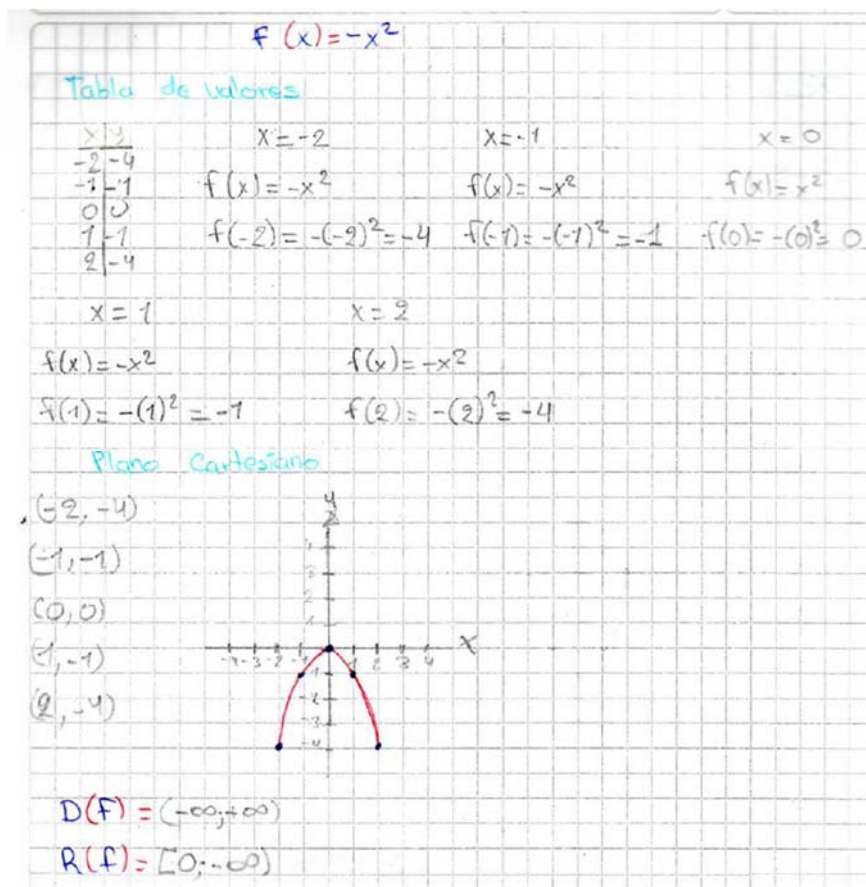 f (x) = -x²
Tabla de valores
x | y
-2 | -4
-1 | -1
0 | 0
1 | -1
2 | -4
x = -2
f(x) = -x²
f(-2) = -(-2)² = -4
x = -1
f(x) = -x²
f(-1) = -(-1)² = -1
x = 0
f(x) = x²
f(0) = -(0)² = 0
x = 1
f(x) = -x²
f(1) = -(1)² = -1
x = 2
f(x) = -x²
f(2) = -(2)² = -4
Plano Cartesiano
(-2, -4)
(-1, -1)
(0, 0)
(1, -1)
(2, -4)
y
4
3
2
1
-4 -3 -2 -1 1 2 3 4 x
-1
-2
-3
-4
D(f) = (-∞; +∞)
R(f) = [0; -∞)